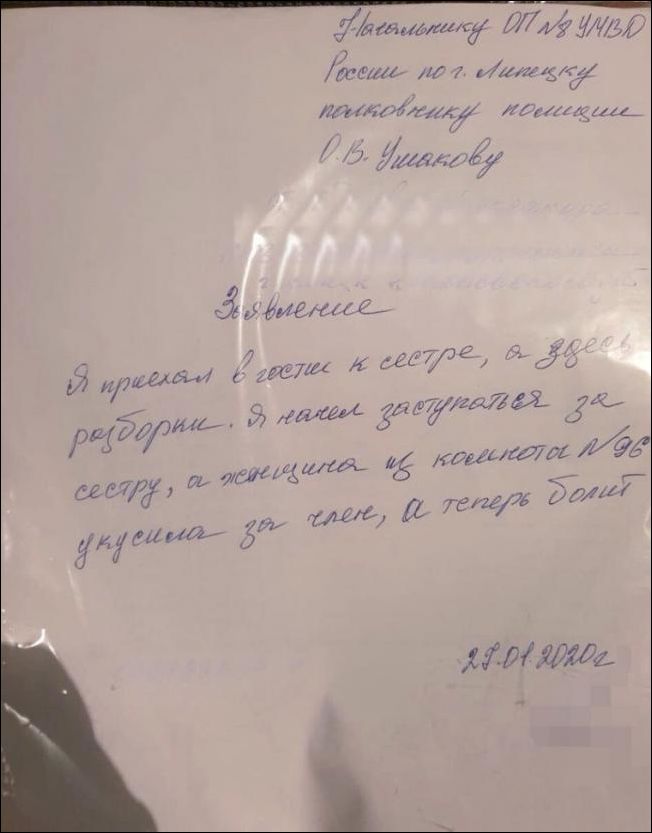 Начальнику ОП №8 УМВД
России по г. Липецку
полковнику полиции
О.В. Ушакову
Заявление
Я приехал в гости к сестре, а здесь
разборки. Я начел заступаться за
сестру, а женщина из комнота №96
укусила за член, а теперь болит
29.01.2020г